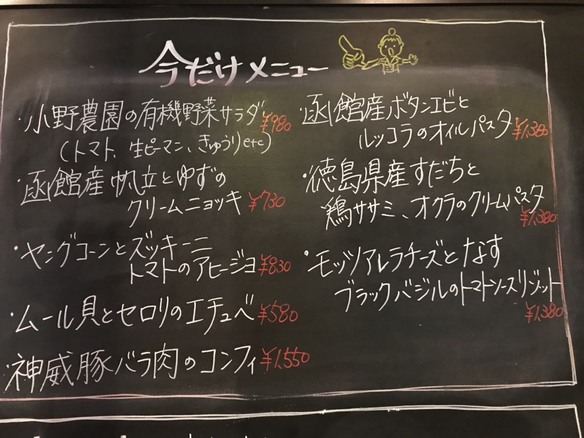 今だけメニュー
・小野農園の有機野菜サラダ ¥980
(トマト、生ピーマン、きゅうりetc)
・函館産帆立とゆずの
クリームニョッキ ¥730
・ヤングコーンとズッキーニ
トマトのアヒージョ ¥830
・ムール貝とセロリのエチュベ ¥580
・神威豚バラ肉のコンフィ ¥1,550
・函館産ボタンエビと
ルッコラのオイルパスタ ¥1,380
・徳島県産すだちと
鶏ササミ、オクラのクリームパスタ
¥1,380
・モッツアレラチーズとなす
ブラックバジルのトマトソースリゾット
¥1,380